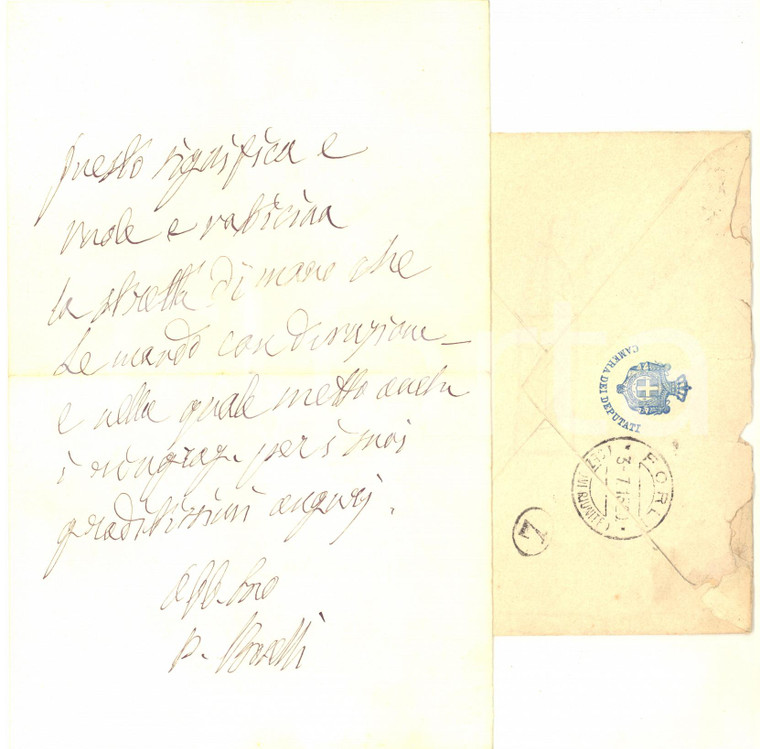 Questo significa e
vuole e vaticina
la stretta di mano che
Le mando con devozione
e nella quale metto anche
i ringraz. per i suoi
graditissimi auguri.
P. Boselli
CAMERA DEI DEPUTATI
FORLI
3-7
Z